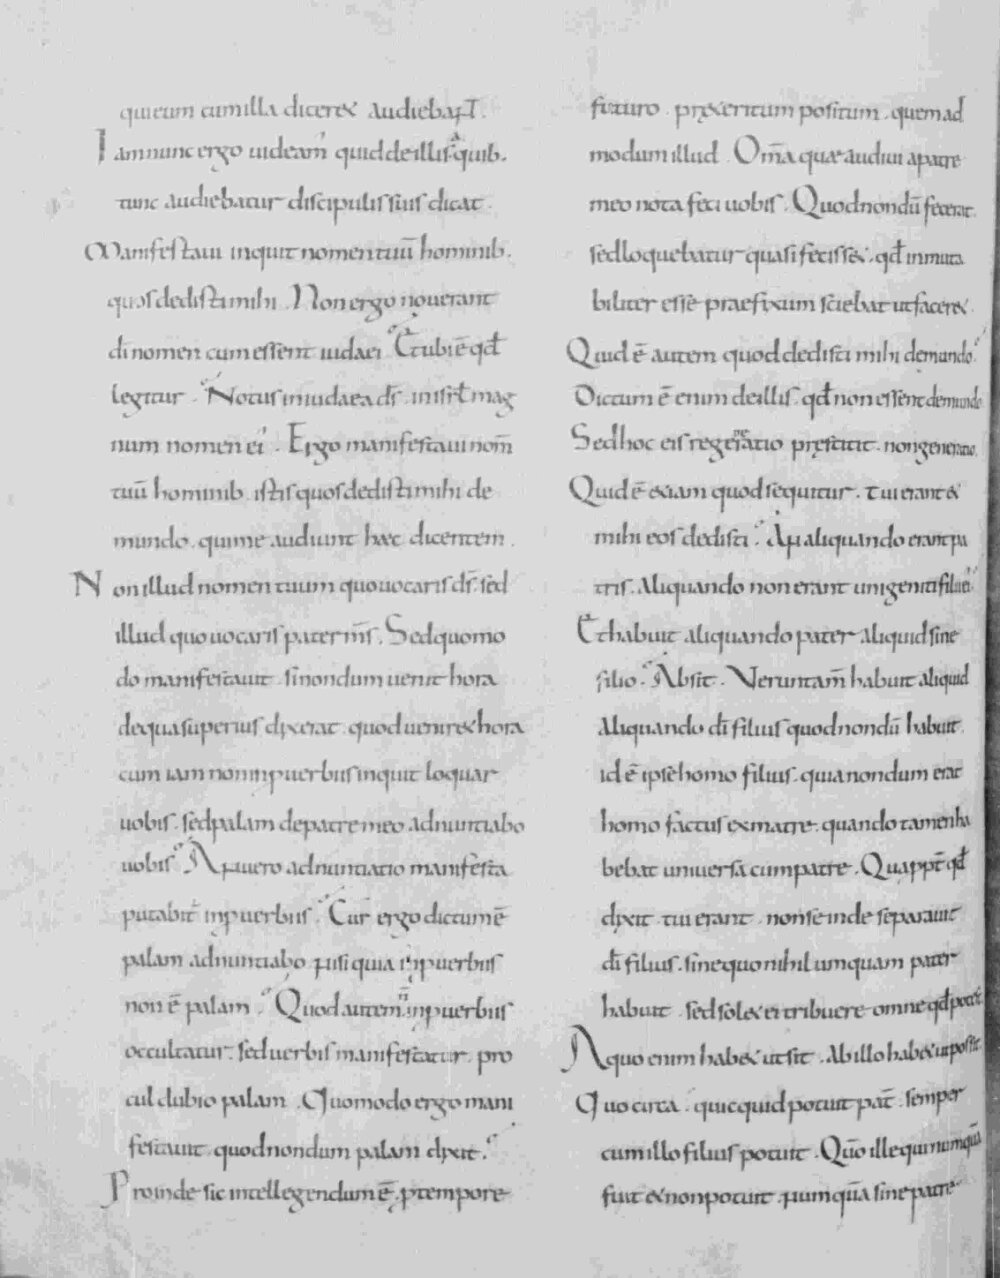 qui eum cum illa diceret audiebant.
Iam nunc ergo uideam' quid de illis quib.
tunc audiebatur discipulis suis dicat.
Manifestaui inquit nomen tuū hominib.
quos dedisti mihi. Non ergo nouerant
di nomen cum essent iudaei. Et ubi ē qđ
legitur. Notus in iudaea ds̄. in isrł mag
num nomen ei'. Ergo manifestaui nom̄
tuū hominib. istis quos dedisti mihi de
mundo. qui me audiunt haec dicentem.
Non illud nomen tuum quo uocaris ds̄. sed
illud quo uocaris pater ms̄. Sed quomo
do manifestauit. si nondum uenit hora
de qua superius dixerat. quod ueniret hora
cum iam non in puerbiis inquit loquar
uobis. sed palam de patre meo adnuntiabo
uobis. An uero adnuntiatio manifesta
putabit' in puerbiis. Cur ergo dictum ē
palam adnuntiabo nisi quia in puerbiis
non ē palam. Quod autem n̄ in puerbiis
occultatur. sed uerbis manifestatur. pro
cul dubio palam. Quomodo ergo mani
festauit. quod nondum palam dixit.
Proinde sic intellegendum ē. p tempore
futuro. pręteritum positum. quemad
modum illud. Om̄a quae audiui a patre
meo nota feci uobis. Quod nondū fecerat.
sed loquebatur quasi fecisset. qđ inmuta
biliter esse praefixum sciebat ut faceret.
Quid ē autem quod dedisti mihi de mundo.
Dictum ē enim de illis. qđ non essent de mundo
Sed hoc eis regeneratio pręstitit. non generatio.
Quid ē etiam quod sequitur. Tui erant et
mihi eos dedisti. An aliquando erant pa
tris. aliquando non erant unigeniti filii ei'.
Et habuit aliquando pater aliquid sine
filio. Absit. Veruntam̄ habuit aliquid
aliquando dī filius quod nondū habuit.
id ē ipse homo filius. quia nondum erat
homo factus ex matre. quando tamen ha
bebat uniuersa cum patre. Quappt̄ qđ
dixit. tui erant. non se inde separauit
dī filius. sine quo nihil umquam pater
habuit. sed solet ei tribuere omne qđ potest.
A quo enim habet ut sit. ab illo habet ut possit.
Quo circa. quicquid potuit pat̄. semper
cum illo filius potuit. Qūo ille qui numquā
fuit et non potuit. numquā sine patre